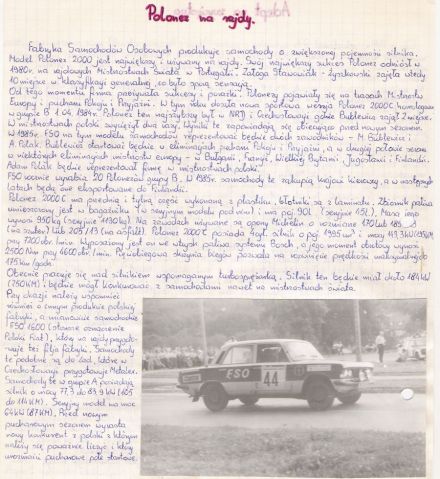 Polonez na rajdy.
Fabryka Samochodów Osobowych produkuje samochody o zwiększonej pojemności silnika.
Model Polonez 2000 jest największy i używany na rajdy. Swój największy sukces Polonez odniósł w
1980r. na rajdowych Mistrzostwach Świata w Portugalii. Załoga Stawowiak - Żyszkowski zajęła wtedy
10 miejsce w klasyfikacji generalnej, co było sporą sensacją.
Od tego momentu firma przeżywała sukcesy i porażki. Polonezy pojawiały się na trasach Mistrzostw
Europy i pucharu Pokoju i Przyjaźni. W tym roku doszła nowa sportowa wersja Polonez 2000C homologowana
w grupie B 1 04.1984r. Polonez ten najszybszy był w NRD i Czechosłowacji gdzie Bublewicz zajął 2 miejsce.
W mistrzostwach polski zwyciężył dwa razy. Wyniki te zapowiadają nie straconego przed nowym sezonem.
W 1985r. FSO na tym modelu samochodu reprezentować będzie dwóch zawodników - M. Bublewicz i
A. Polak. Bublewicz startować będzie w eliminacjach pucharu Pokoju i Przyjaźni, a w drugiej połowie sezonu
w niektórych eliminacjach mistrzostw europy - w Bułgarii, Francji, Wielkiej Brytanii, Jugosławii i Finlandii.
Adam Polak będzie reprezentował firmę w mistrzostwach polski.
FSO rocznie wypuści 20 Polonezów grupy B. W 1985r. samochody te zakupią kraju kierowcy, a w następnych
latach będą one eksportowane do Finlandii.
Polonez 2000C ma przednią i tylną część wykonaną z plastiku. Błotniki są z laminatu. Zbiornik paliwa
umieszczony jest w bagażniku (w seryjnym modelu pod nim) i ma poj. 90L. (seryjne 45L). Masa jego
wynosi 950kg (seryjne 1140kg). Na zawodach używane są opony Michelin o rozmiarze 170 lub 185
(na szuter) lub 205/13 (na asfalt). Polonez 2000C posiada 4cyl. silnik o poj. 1995cm³ i mocy 119,3kW (
przy 7200 obr./min. Wyposażony jest on we wtrysk paliwa systemu Bosch, a jego moment obrotowy wynosi
Nm przy 4600 obr./min. Pięciobiegowa skrzynia biegów pozwala na rozwinięcie prędkości maksymalnych
175km/godz.
Obecnie pracuje się nad silnikiem wspomaganym turbosprężarką. Silnik ten będzie miał około 184kW
(250KM) i będzie mógł konkurować z samochodami nawet na mistrzostwach świata.
Przy okazji należy wspomnieć
również o innym produkcie polskiej
fabryki, a mianowicie samochodzie
FSO 1600 (dawne oznaczenie
Polski Fiat), który na rajdy przygotowuje
filja fabryki. Samochody
te podobne są do Ład, które w
Czechosłowacji przygotowuje Metalex.
Samochody te w grupie A posiadają
silnik o mocy 77,3 do 83,9 kW (105
do 114KM). Seryjny model ma moc
64kW (87KM). Przed nowym
pucharowym sezonem wyrasta
nowy konkurent z polski z którym
należy się poważnie liczyć i który
urozmaici pucharowe pole startowe.
FSO 44